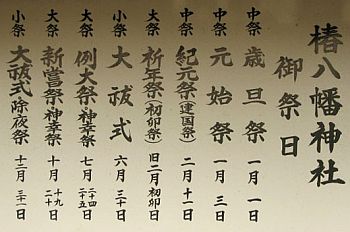 椿八幡神社
御祭日
中祭 歳旦祭 一月一日
中祭 元始祭 一月三日
中祭 紀元祭(建国祭) 二月十一日
大祭 祈年祭(初卯祭) 旧二月初卯日
小祭 大祓式 六月三十日
大祭 例大祭神幸祭 七月二十四二十五日
大祭 新嘗祭神幸祭 十月十九二十日
小祭 大祓式除夜祭 十二月三十一日